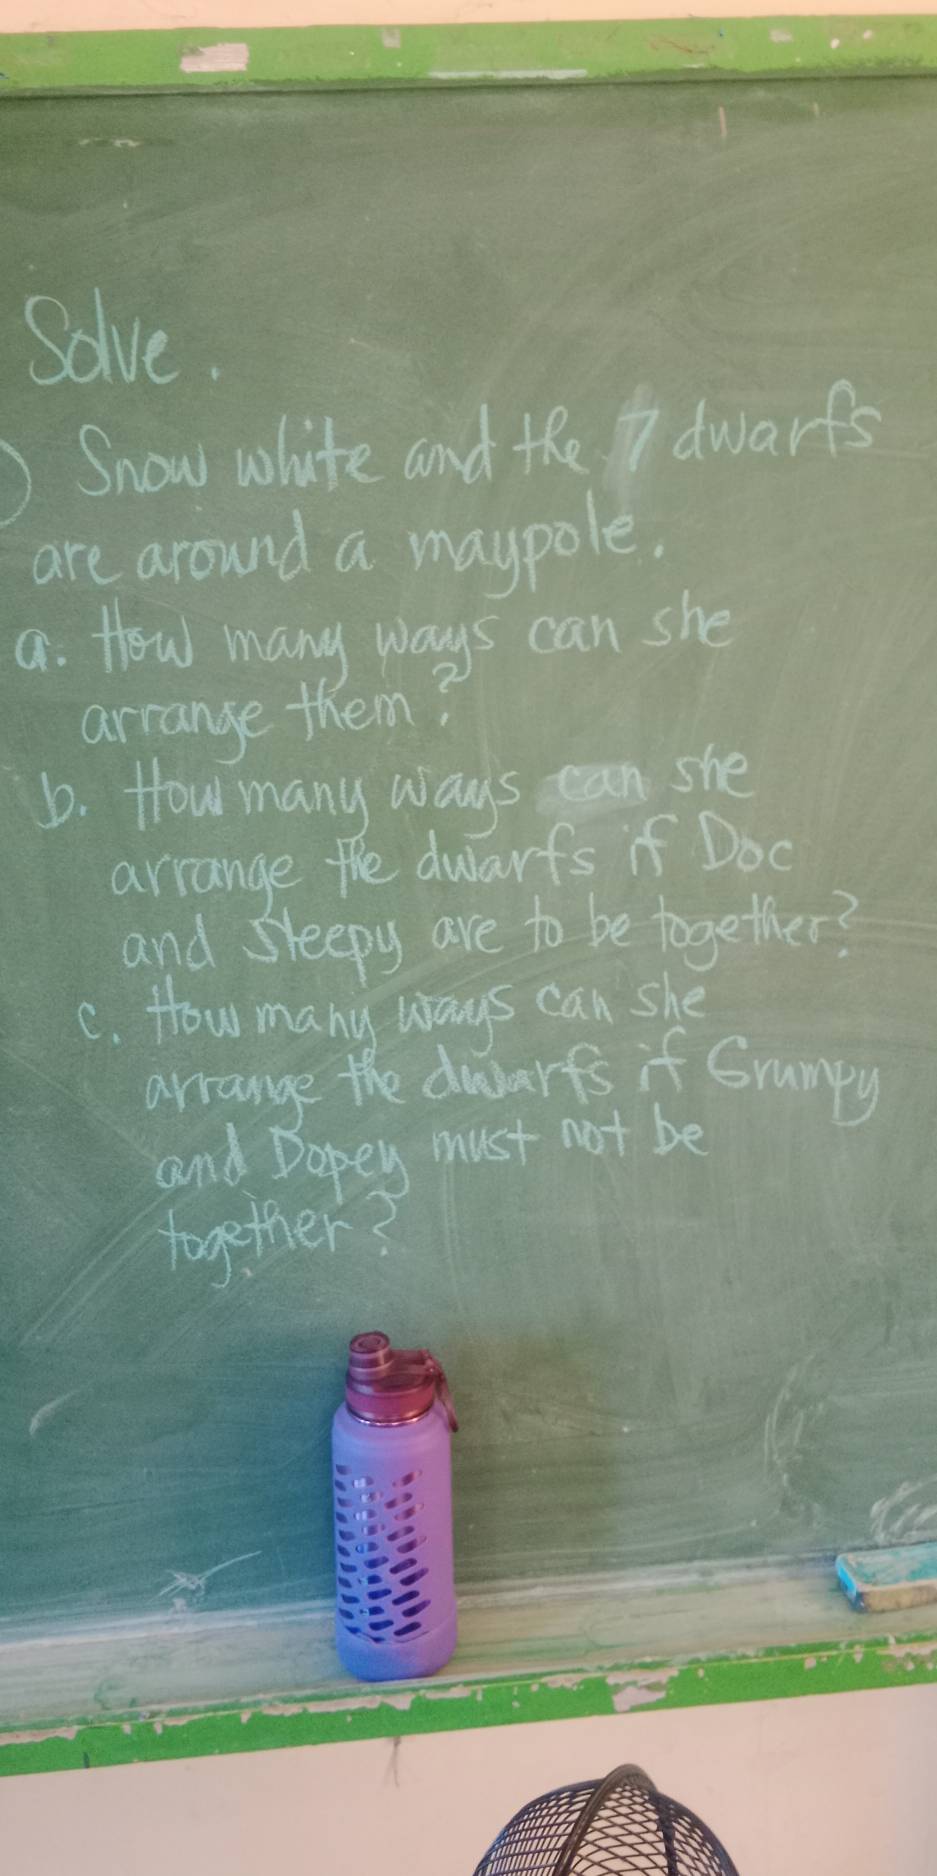 Solve.
) Snow white and the 7 dwarfs
are around a maypole.
a. How many ways can she
arrange them?
b. How many ways can she
arrange the dwarfs if Doc
and Sleepy are to be together?
c. How many ways can she
arrange the dwarfs if Grumpy
and Dopey must not be
together?